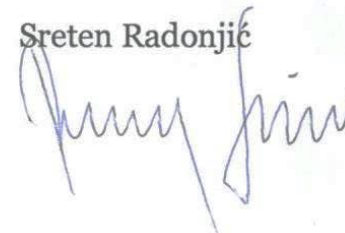 Sreten Radonjić